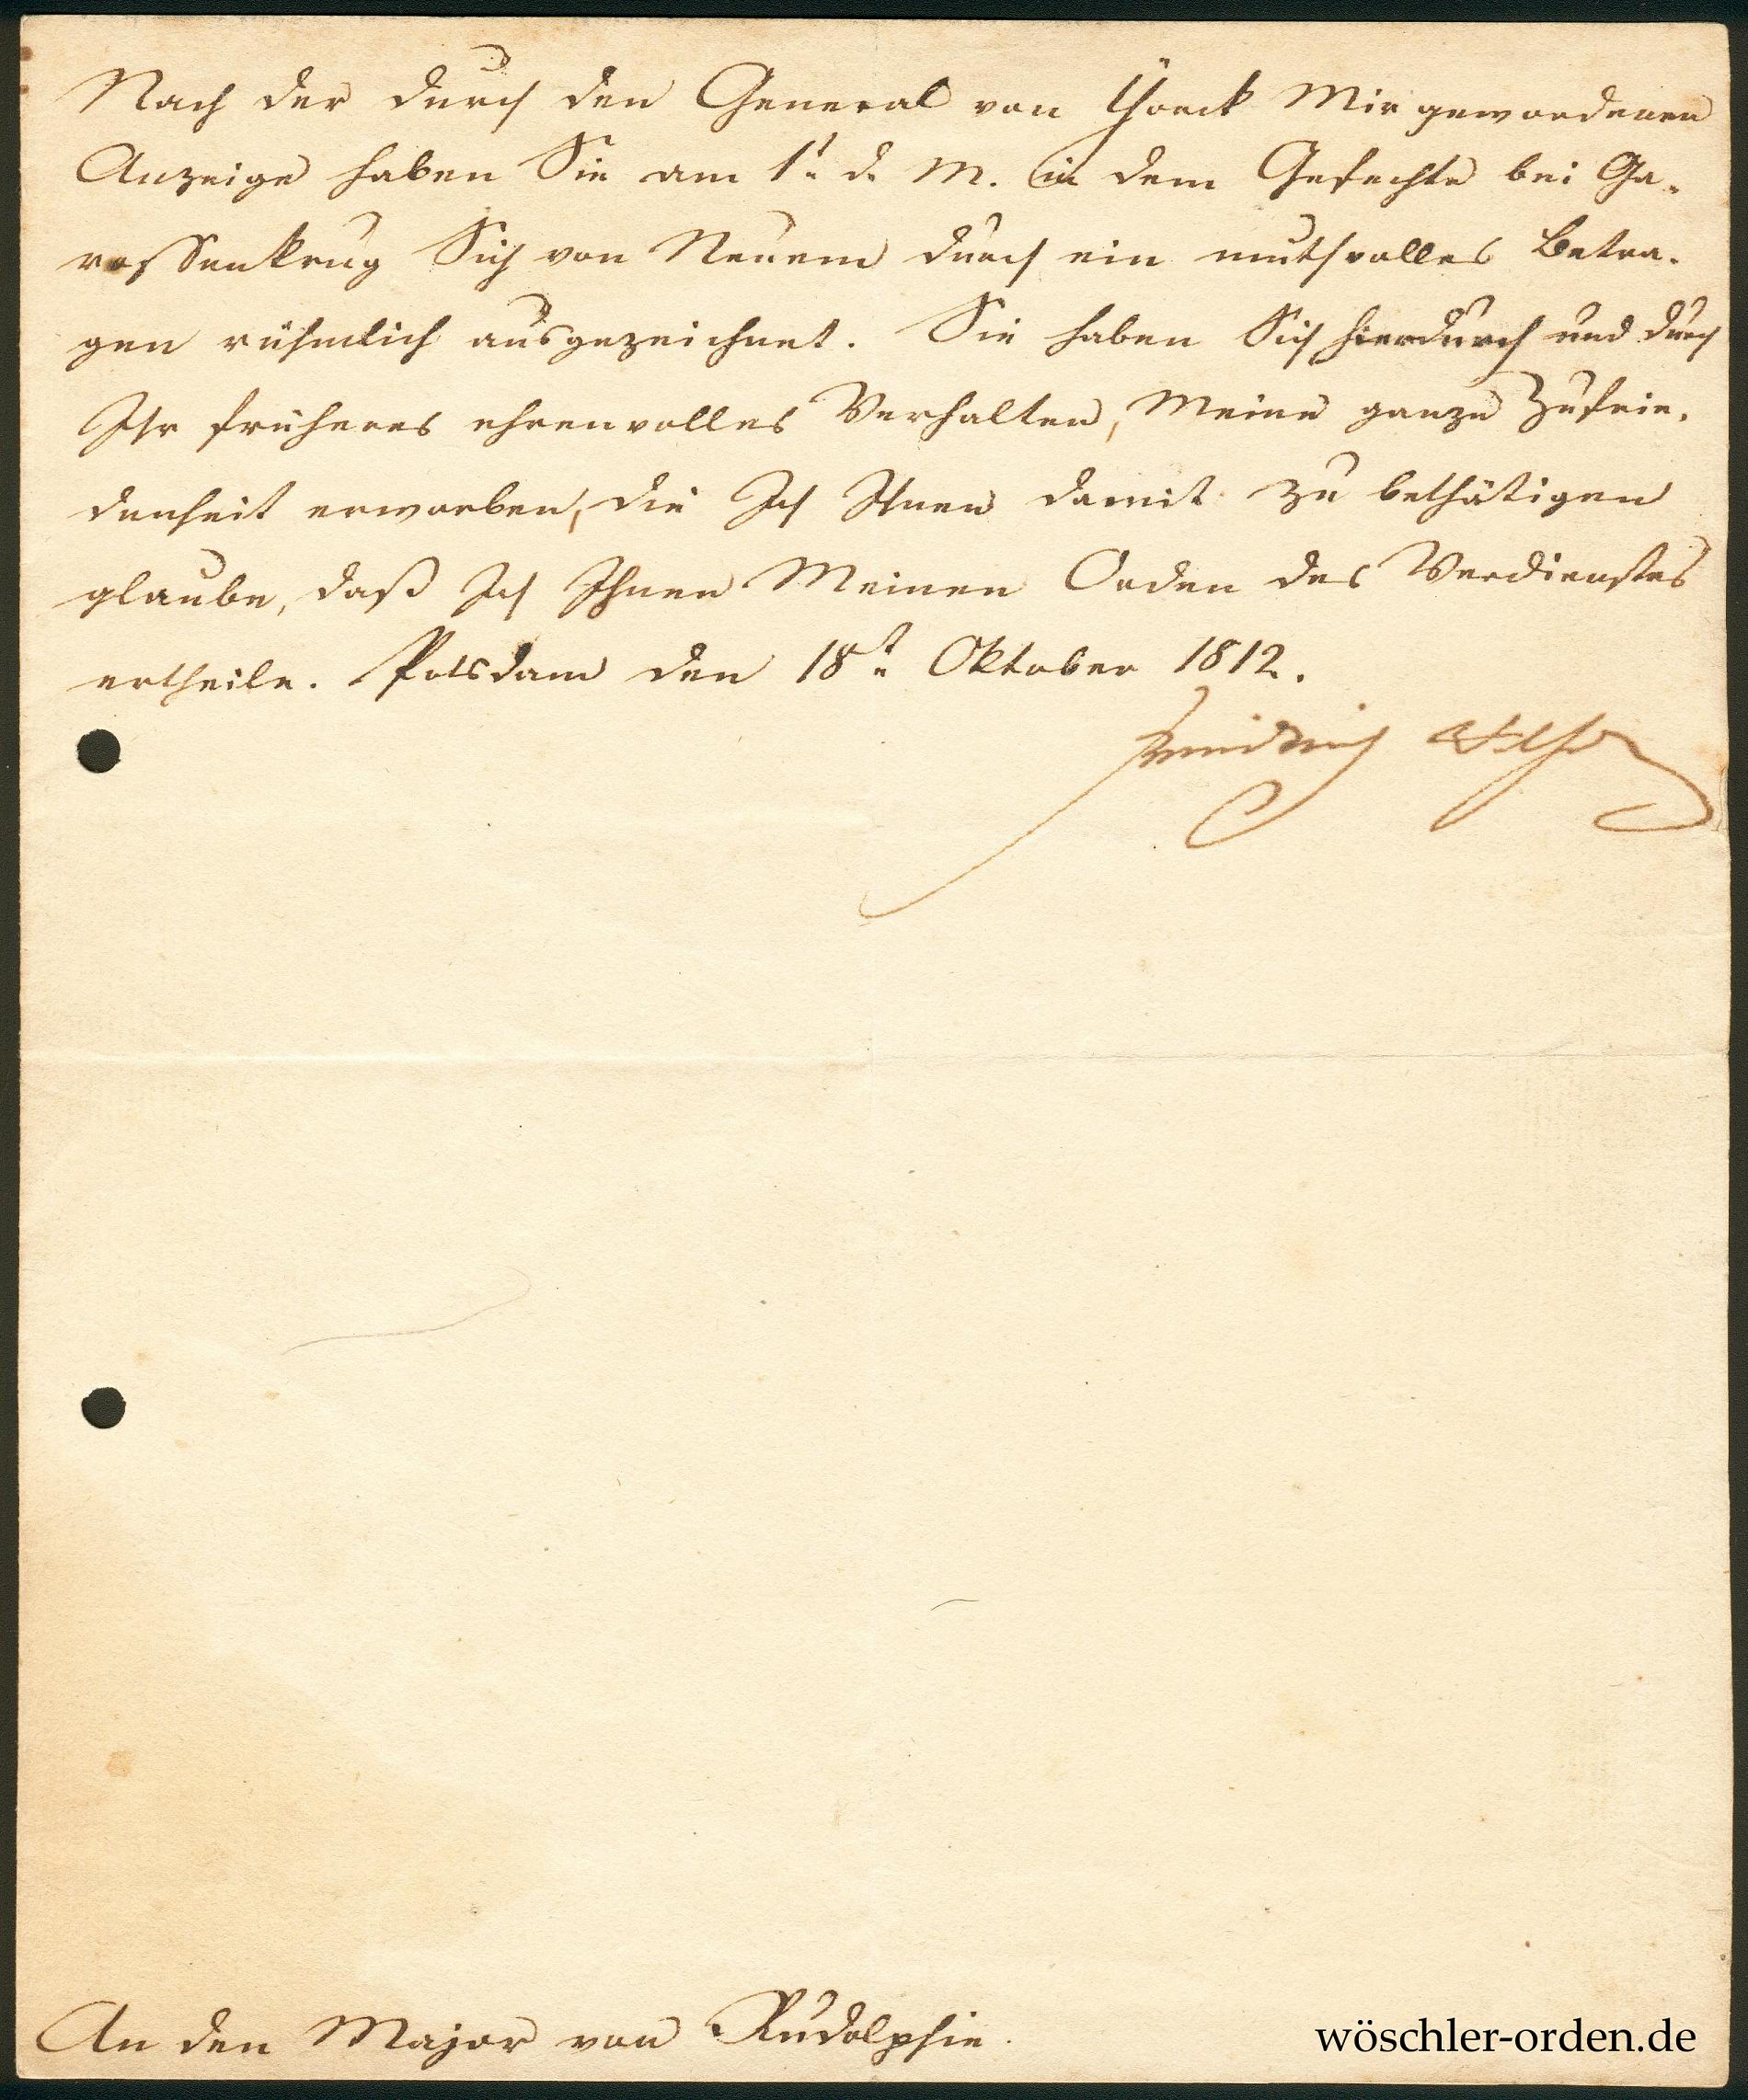 Nach der durch den General von Yorck Mir gewordenen
Anzeige haben Sie am 1t. d. M. in dem Gefechte bei Ga-
rossenkrug Sich von Neuem durch ein muthvolles Betra-
gen rühmlich ausgezeichnet. Sie haben Sich hierdurch und durch
Ihr früheres ehrenvolles Verhalten, Meine ganze Zufrie-
denheit erworben, die Ich Ihnen damit zu bethätigen
glaube, daß Ich Ihnen Meinen Orden des Verdienstes
ertheile. Potsdam den 18t. Oktober 1812.
Friedrich Wilhelm
An den Major von Rudolphie.
wöschler-orden.de